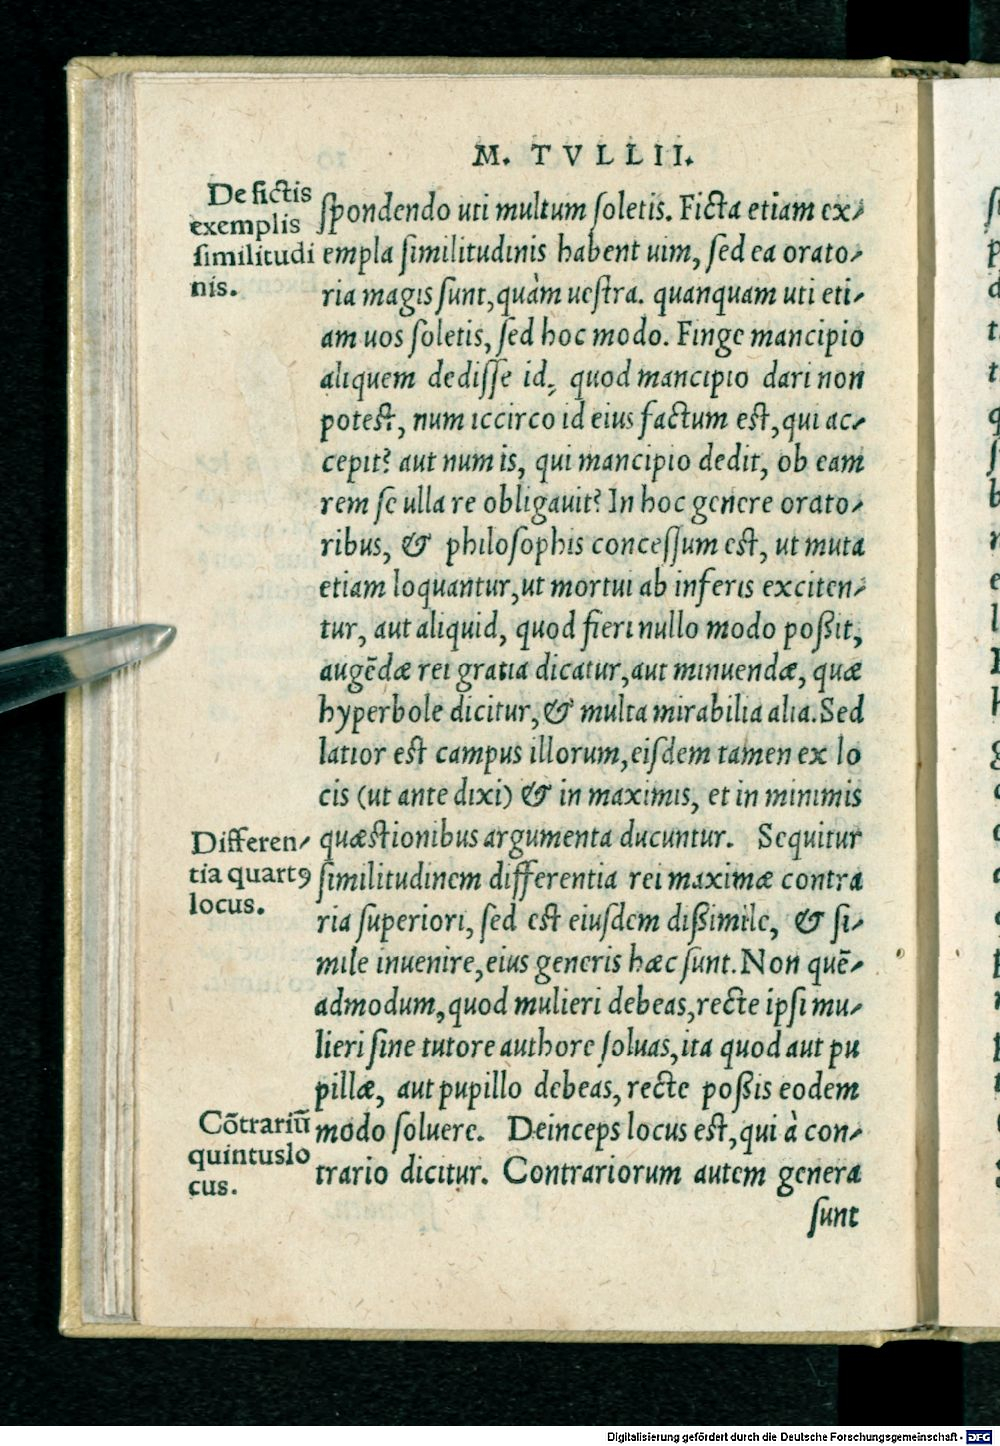 M. TVLLII.
De fictis
exemplis
ſimilitudi
nis.
ſpondendo uti multum ſoletis. Ficta etiam ex-
empla ſimilitudinis habent uim, ſed ea orato-
ria magis ſunt, quàm ueſtra. quanquam uti eti-
am uos ſoletis, ſed hoc modo. Finge mancipio
aliquem dediſſe id, quod mancipio dari non
poteſt, num iccirco id eius factum eſt, qui ac-
cepit? aut num is, qui mancipio dedit, ob eam
rem ſe ulla re obligauit? In hoc genere orato-
ribus, & philoſophis conceſſum eſt, ut muta
etiam loquantur, ut mortui ab inferis exciten-
tur, aut aliquid, quod fieri nullo modo poßit,
augẽdæ rei gratia dicatur, aut minuendæ, quæ
hyperbole dicitur, & multa mirabilia alia. Sed
latior eſt campus illorum, eiſdem tamen ex lo
cis (ut ante dixi) & in maximis, et in minimis
quæſtionibus argumenta ducuntur. Sequitur
Differen-
tia quartꝰ
locus.
ſimilitudinem differentia rei maximæ contra
ria ſuperiori, ſed eſt eiuſdem dißimile, & ſi-
mile inuenire, eius generis hæc ſunt. Non quẽ-
admodum, quod mulieri debeas, recte ipſi mu-
lieri ſine tutore authore ſoluas, ita quod aut pu
pillæ, aut pupillo debeas, recte poßis eodem
Cõtrariũ
quintus lo
cus.
modo ſoluere. Deinceps locus eſt, qui à con-
trario dicitur. Contrariorum autem genera
ſunt
Digitalisierung gefördert durch die Deutsche Forschungsgemeinschaft - DFG